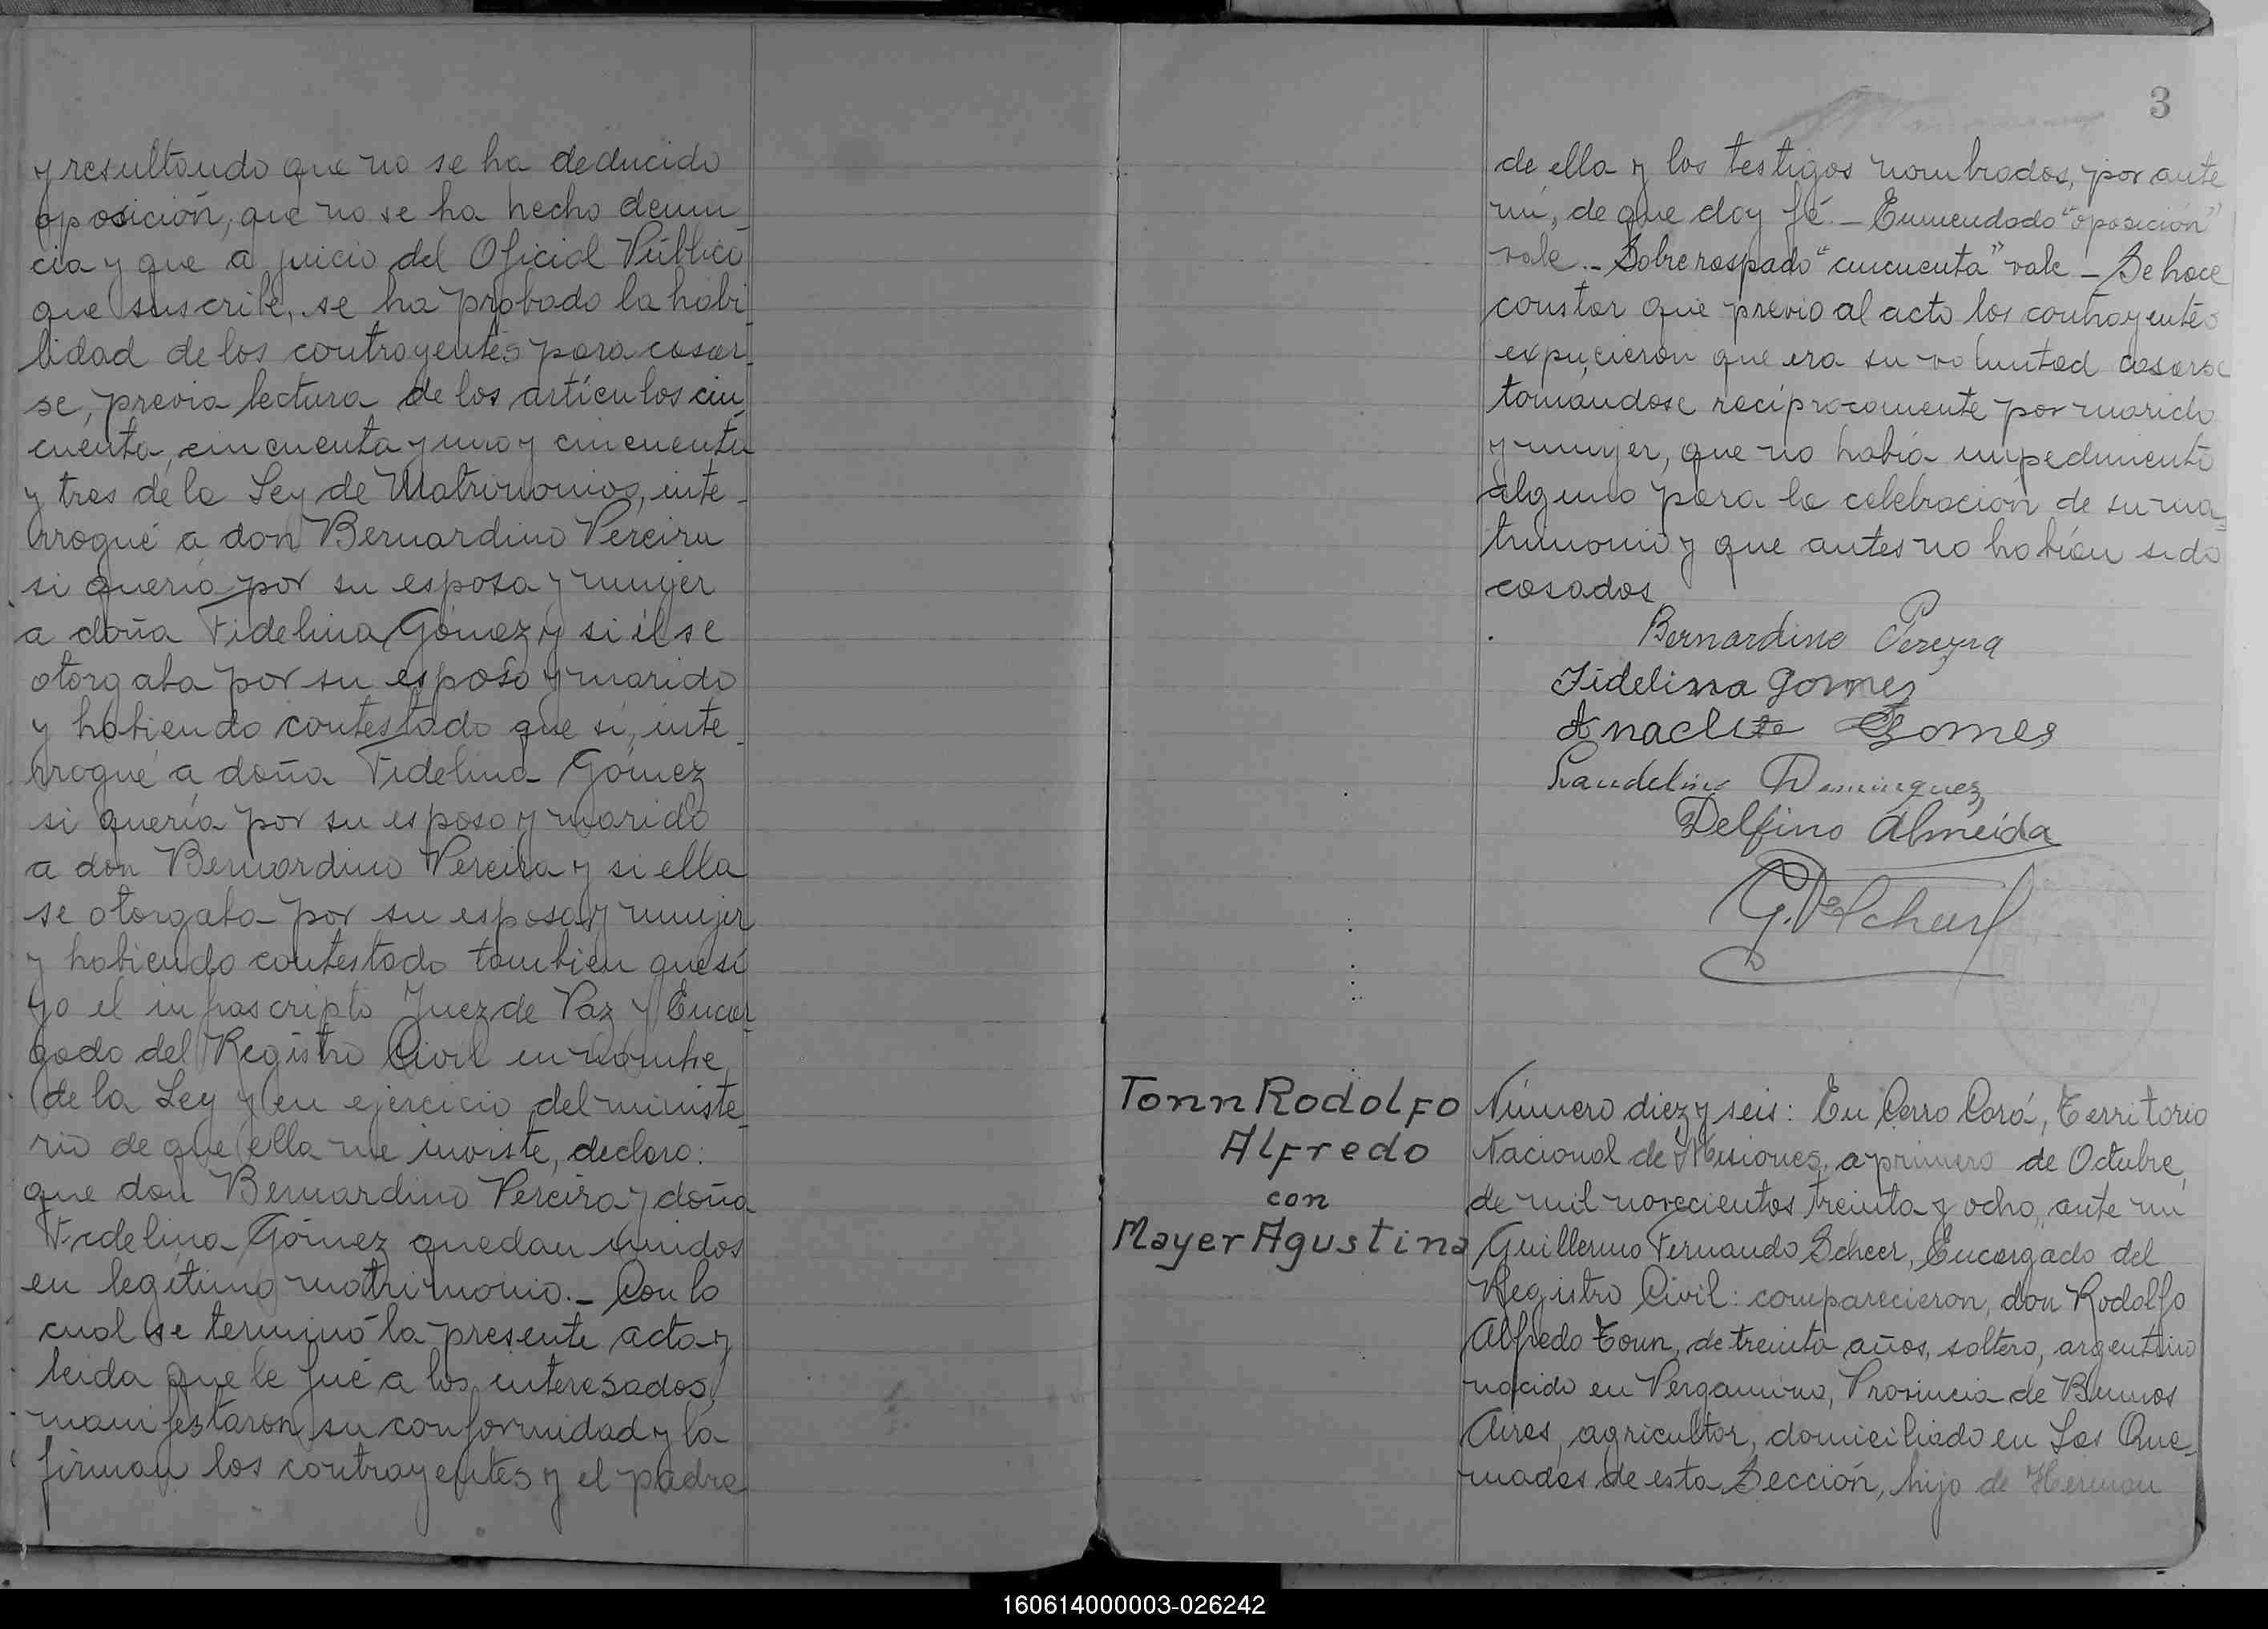 y resultando que no se ha deducido
oposición, que no se ha hecho denun
cia y que a juicio del Oficial Público
que suscribe, se ha probado la habi
lidad de los contrayentes para casar-
se, previa lectura de los artículos cin
cuenta, cincuenta y uno y cincuenta
y tres de la Ley de Matrimonios, inte-
rrogué a don Bernardino Pereira
si quería por su esposa y mujer
a doña Fidelina Gómez y si él se
otorgaba por su esposo y marido
y habiendo contestado que sí, inte-
rrogué a doña Fidelina Gómez
si quería por su esposo y marido
a don Bernardino Pereira y si ella
se otorgaba por su esposa y mujer
y habiendo contestado tambien que sí
yo el infrascripto Juez de Paz y Encar-
gado del Registro Civil en nombre
de la Ley y en ejercicio del ministe-
rio de que ella me inviste, declaro:
que don Bernardino Pereira y doña
Fidelina Gómez quedan unidos
en legítimo matrimonio.- Con lo
cual se terminó la presente acta y
leida que le fué a los interesados,
manifestaron su conformidad y la
firman los contrayentes y el padre
3
de ella y los testigos nombrados, por ante
mí, de que doy fé.- Enmendado "oposición"
vale.- Sobreraspado "cincuenta" vale - Se hace
constar que previo al acto los contrayentes
expucieron que era su voluntad casarse
tomándose recíprocamente por marido
y mujer, que no había impedimento
alguno para la celebración de su ma-
trimonio y que antes no habían sido
casados
Bernardino Pereyra
Fidelina Gomez
Anaclete Gomes
Candelino Dominguez
Delfino Almeida
Tonn Rodolfo
Alfredo
con
Mayer Agustina
Número diez y seis: En Cerro Corá, Territorio
Nacional de Misiones, a primero de Octubre,
de mil novecientos treinta y ocho, ante mí
Guillermo Fernando Scheer, Encargado del
Registro Civil: comparecieron, don Rodolfo
Alfredo Tonn, de treinta años, soltero, argentino
nacido en Pergamino, Provincia de Buenos
Aires, agricultor, domiciliado en Las Que-
madas de esta Sección, hijo de Herman
160614000003-026242